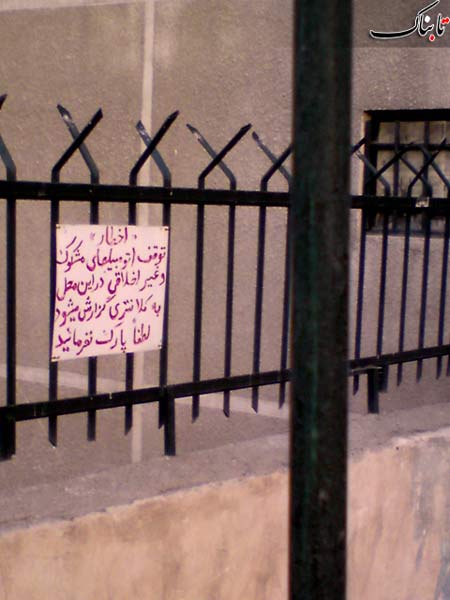 تابناک
«اخطار»
توقف اتومبیلهای مشکوک
و غیر اخلاقی در این محل
به کلانتری گزارش میشود
لطفاً پارک نفرمائید